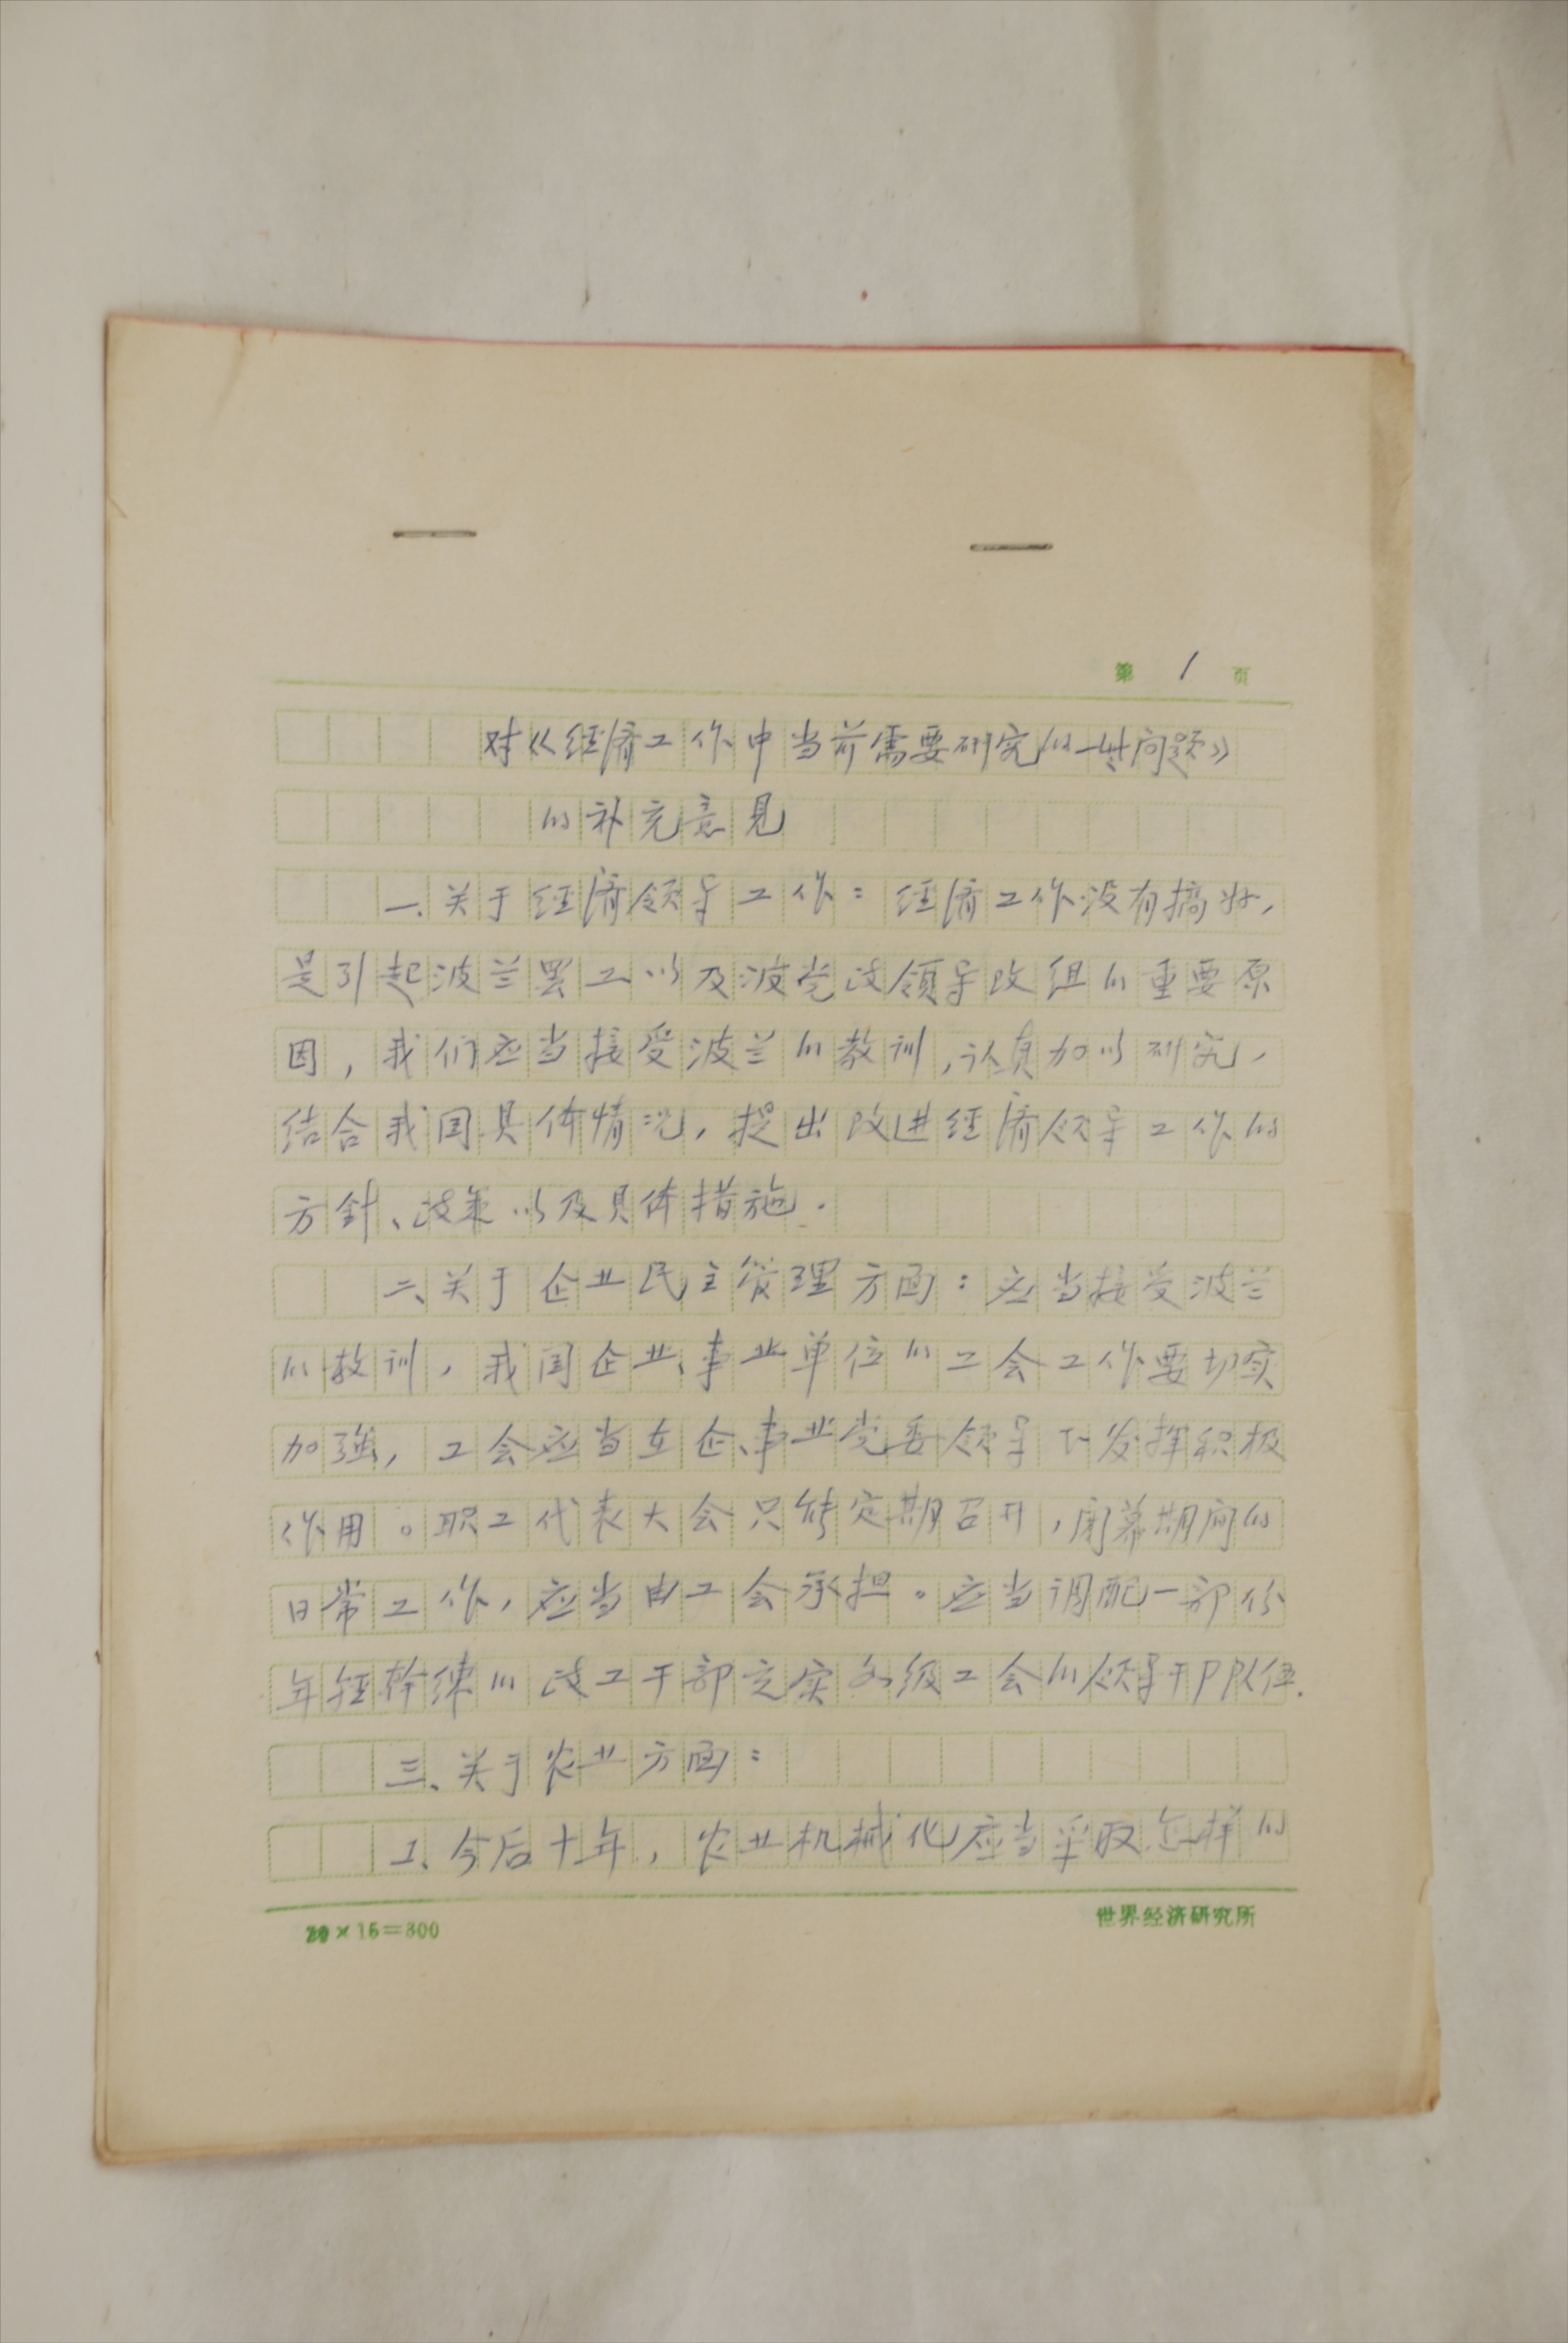 第 1 页
对《经济工作中当前需要研究的一些问题》
的补充意见
一、关于经济领导工作：经济工作没有搞好，
是引起波兰罢工以及波党政领导改组的重要原
因，我们应当接受波兰的教训，认真加以研究，
结合我国具体情况，提出改进经济领导工作的
方针、政策以及具体措施．
二、关于企业民主管理方面：应当接受波兰
的教训，我国企业、事业单位的工会工作要切实
加强，工会应当在企、事业党委领导下发挥积极
作用。职工代表大会只能定期召开，闭幕期间的
日常工作，应当由工会承担。应当调配一部份
年轻幹练的政工干部充实各级工会的领导干部队伍．
三、关于农业方面：
1、今后十年，农业机械化应当采取怎样的
20×15=300
世界经济研究所